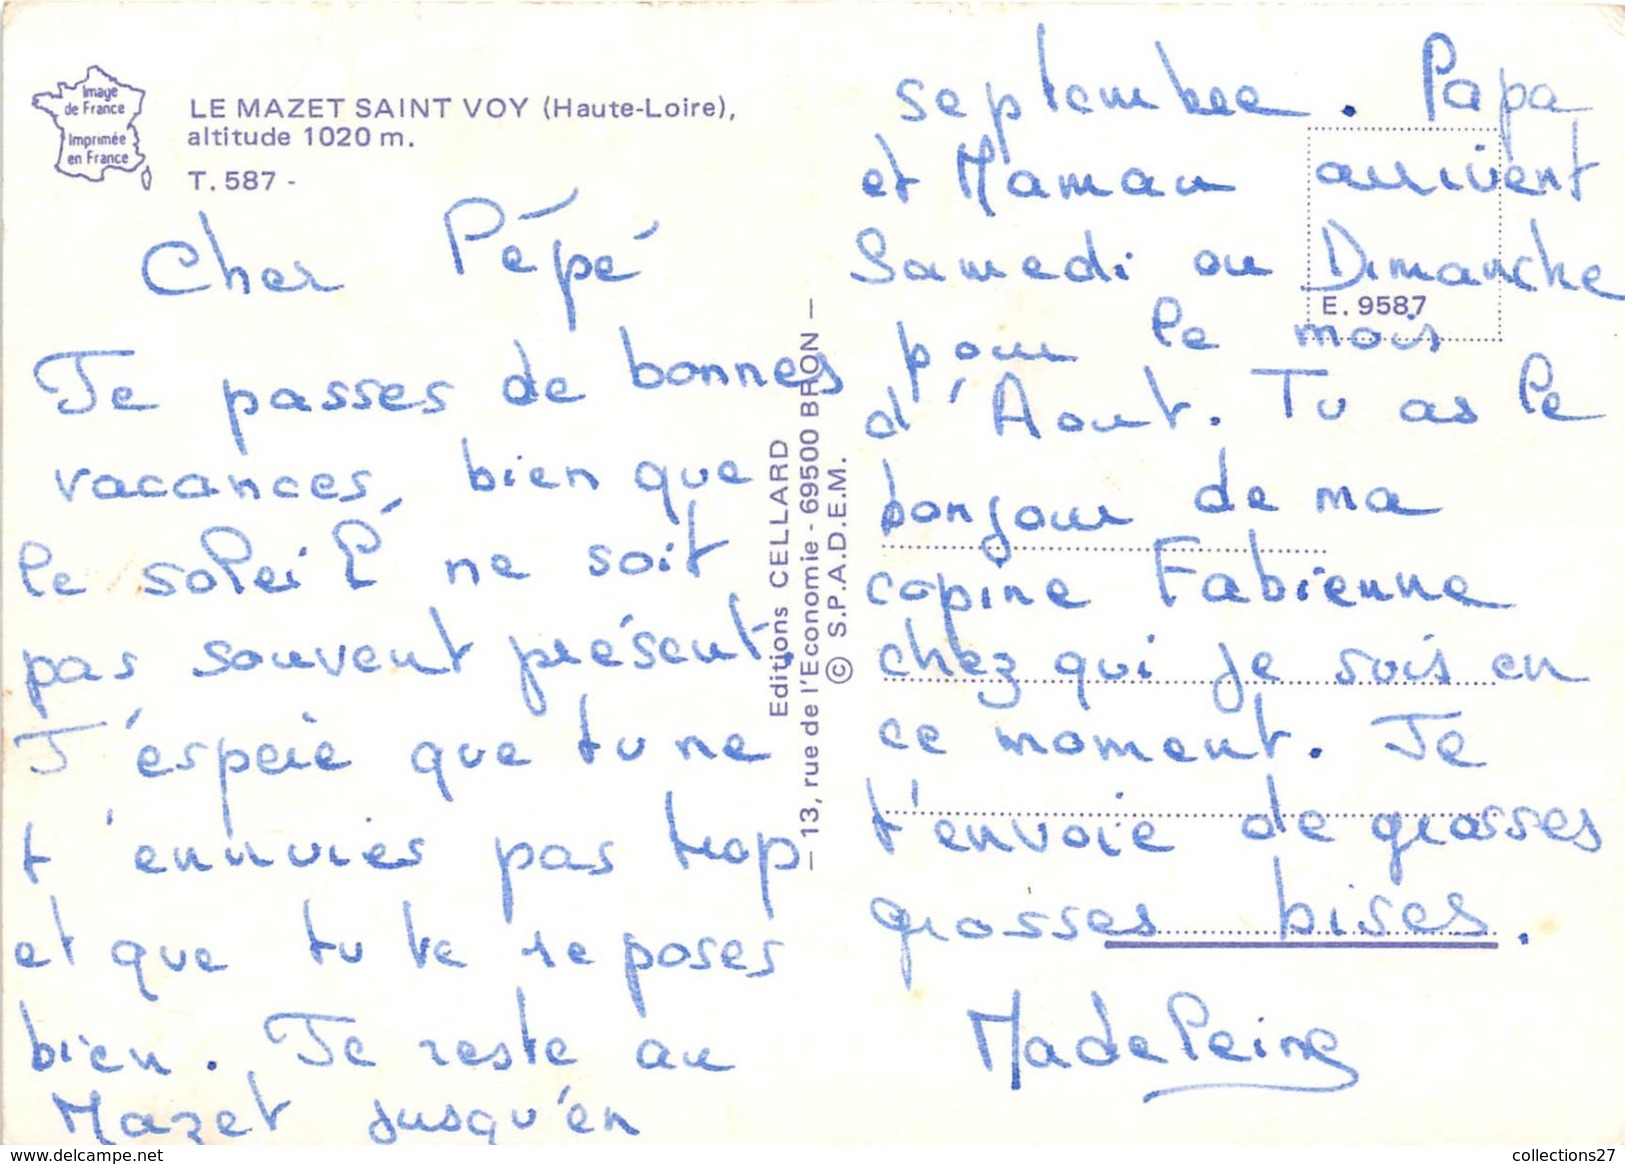 Image
de France
Imprimée
en France
LE MAZET SAINT VOY (Haute-Loire),
altitude 1020 m.
T. 587 -
Cher Pépé
Je passes de bonnes
vacances, bien que
le soleil ne soit
pas souvent présent,
J'éspère que tu ne
t'ennuies pas trop
et que tu te reposes
bien. Je reste au
Mazet jusqu'en
Editions CELLARD
– 13, rue de l'Economie - 69500 BRON –
© S.P.A.D.E.M.
septembre. Papa
et Maman arrivent
Samedi ou Dimanche
E. 9587
pour le mois
d'Aout. Tu as le
bonjour de ma
copine Fabienne
chez qui je suis en
ce moment. Je
t'envoie de grosses
grosses bises.
Madeleine
www.delcampe.net
collections27